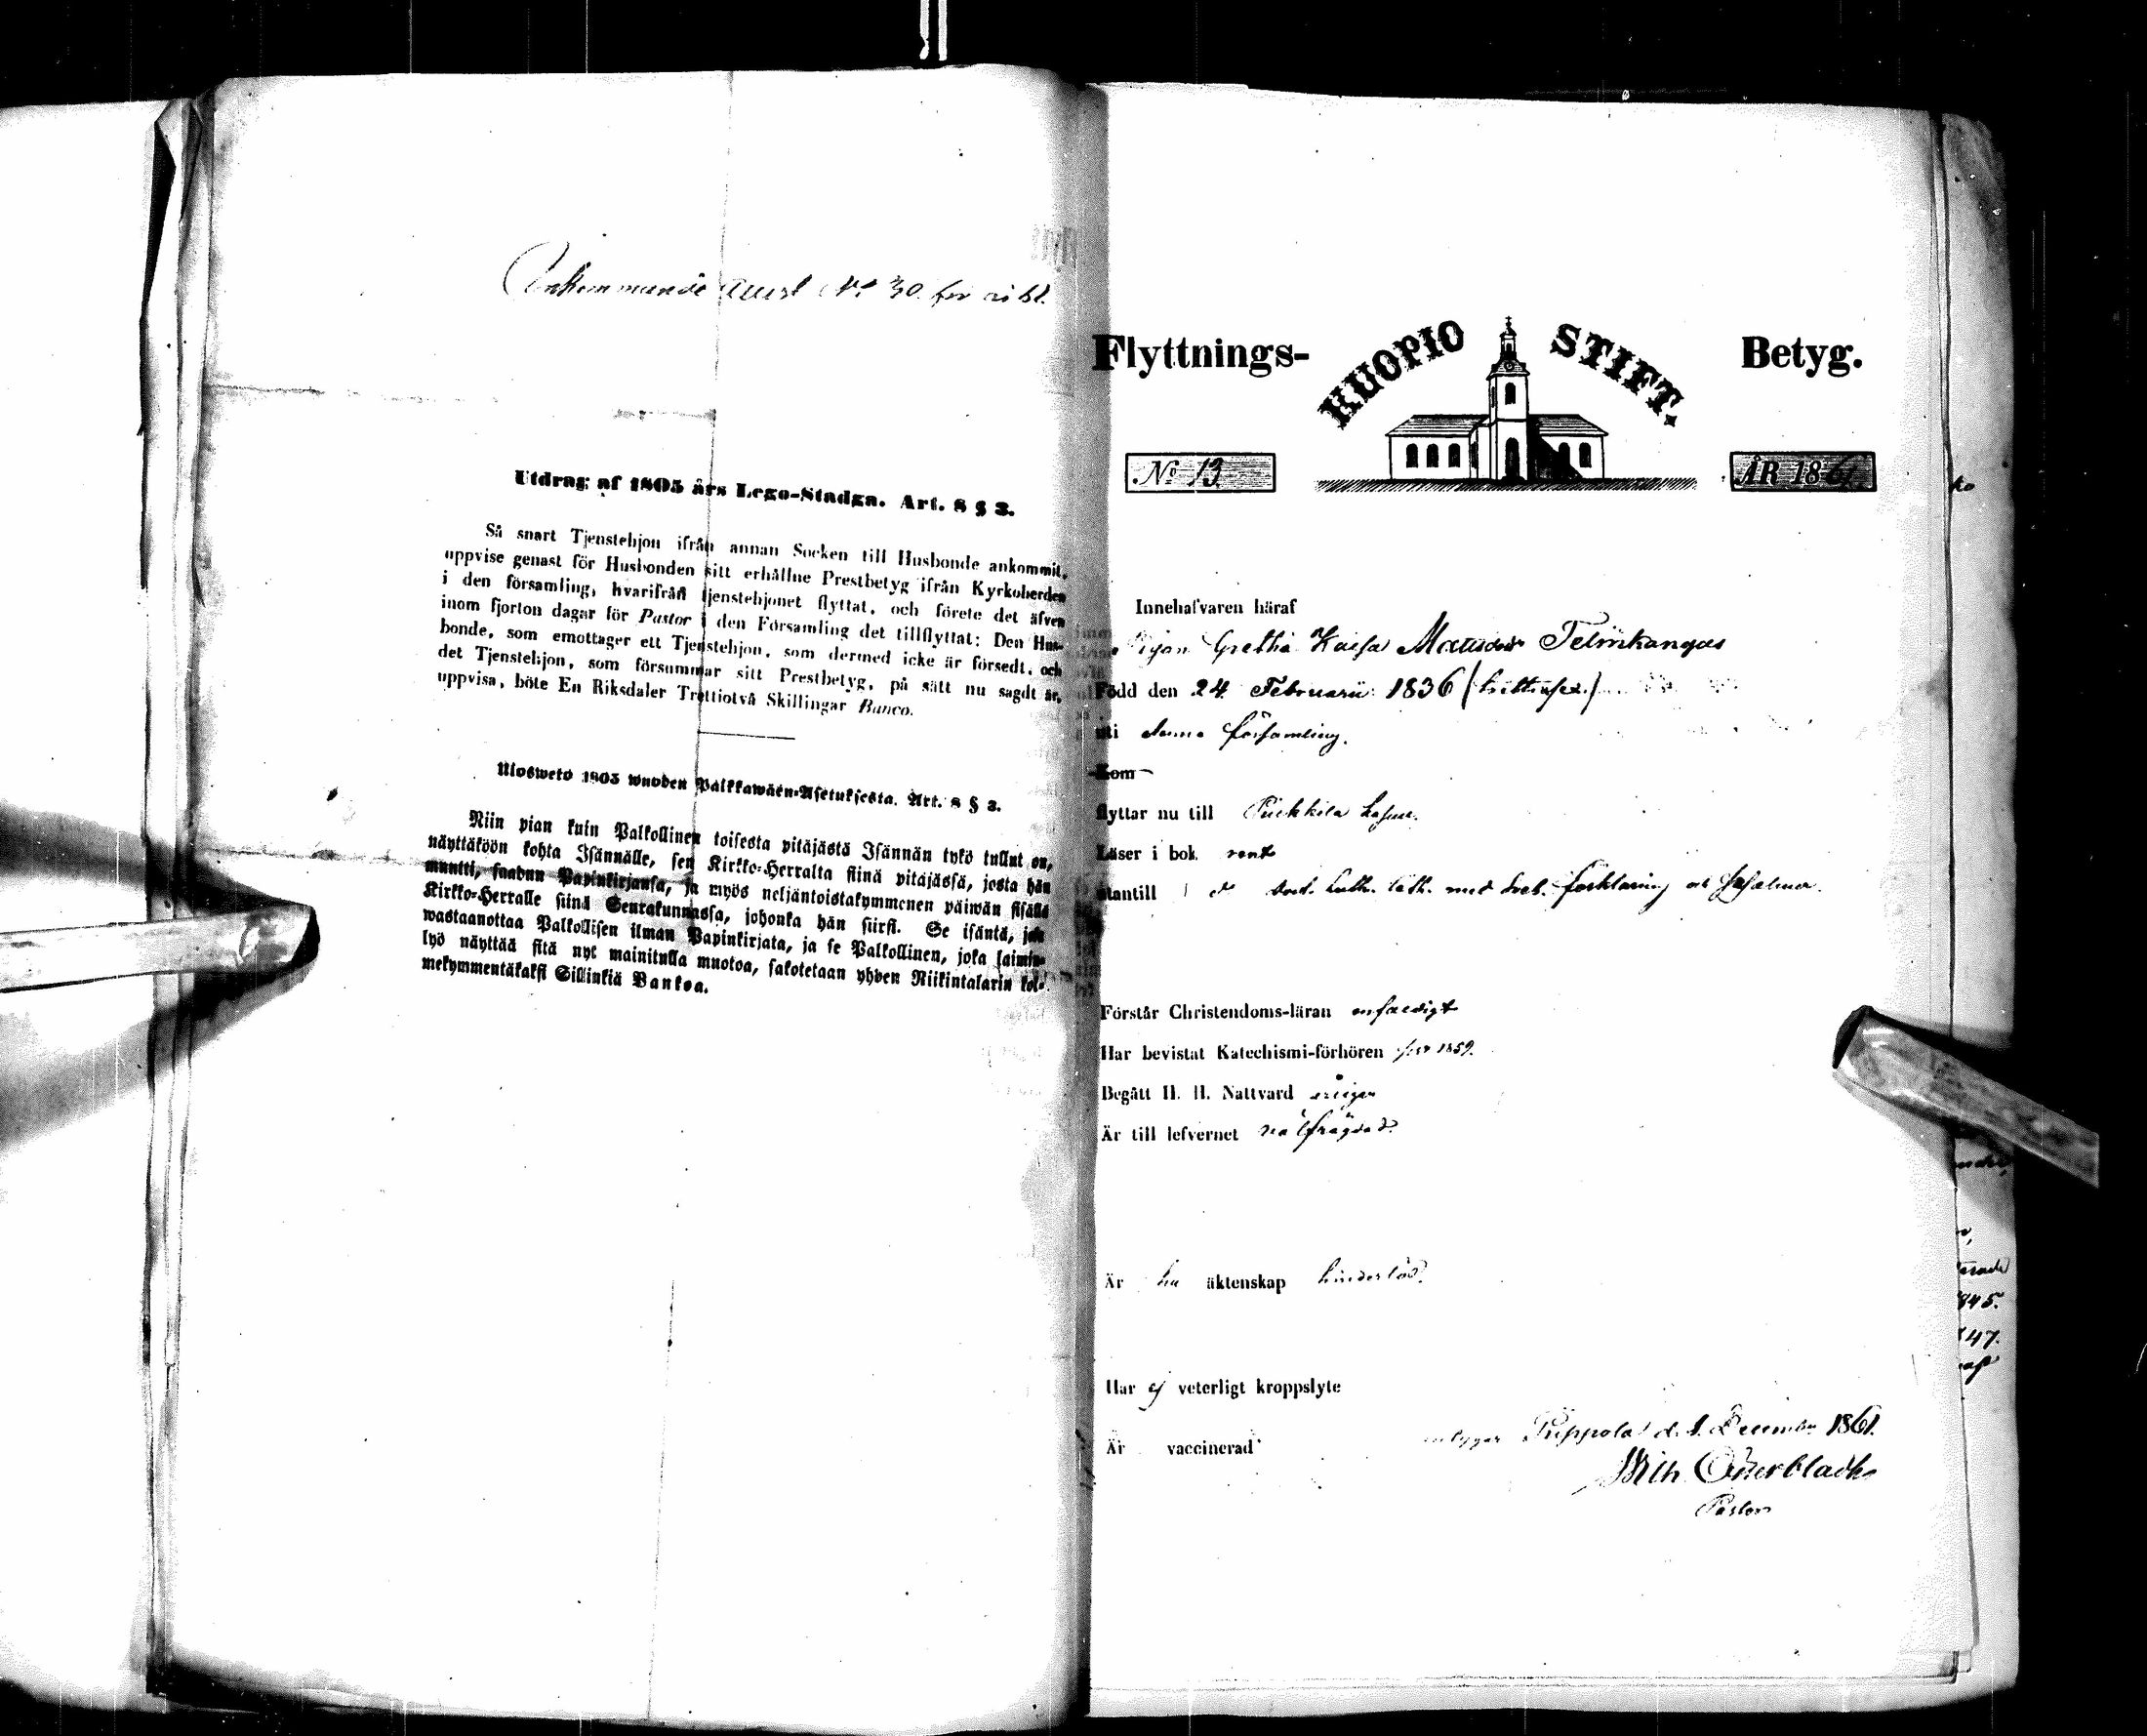 Ankommande attest No 30 för
Utdrag af 1805 års Lego-Stadga. Art. 8 § 3.
Så snart Tjenstehjon ifrån annan Socken till Husbonde ankommit,
uppvise genast för Husbonden sitt erhållne Prestbetyg ifrån Kyrkoherden
i den församling, hvarifrån tjenstehjonet flyttat, och förete det äfven
inom fjorton dagar för Pastor i den Församling det tillflyttat: Den Hus-
bonde, som emottager ett Tjenstehjon, som dermed icke är försedt, och
det Tjenstehjon, som försummar sitt Prestbetyg, på sätt nu sagdt är,
uppvisa, böte En Riksdaler Trettiotvå Skillingar Banco.
Ulosweto 1805 wuoden Palkkawäen-Asetuksesta. Art. 8 § 3.
Niin pian kuin Palkollinen toisesta pitäjästä Isännän tykö tullut on,
näyttäköön kohta Isännälle, sen Kirkko-Herralta siinä pitäjässä, josta hän
muutti, saadun Papinkirjansa, ja myös neljäntoistakymmenen päiwän sisällä
Kirkko-Herralle siinä Seurakunnassa, johonka hän siirsi. Se isäntä, joka
wastaanottaa Palkollisen ilman Papinkirjata, ja se Palkollinen, joka laimin-
lyö näyttää sitä nyt mainitulla muotoa, sakotetaan yhden Riikintalarin kol-
mekymmentäkaksi Sillinkiä Bankoa.
Flyttnings- KUOPIO STIFT. Betyg.
No 13 ÅR 1861.
Innehafvaren häraf
Pigan Gretha Kaisa Matsdotter Telinkangas
Född den 24 Februarii 1836
uti denna församling.
Kom
flyttar nu till Piikkilä
Läser i bok rent
utantill d:o Luth. Cath. med förklaring och
Förstår Christendoms-läran enfaldigt
Har bevistat Katechismi-förhören för 1859.
Begått H. H. Nattvard årligen
Är till lefvernet välfrägdad.
Är till äktenskap hinderlös.
Har ej veterligt kroppslyte
Är vaccinerad
intygar Pippola d. 1 December 1861.
Wilh. Österbladh
Pastor